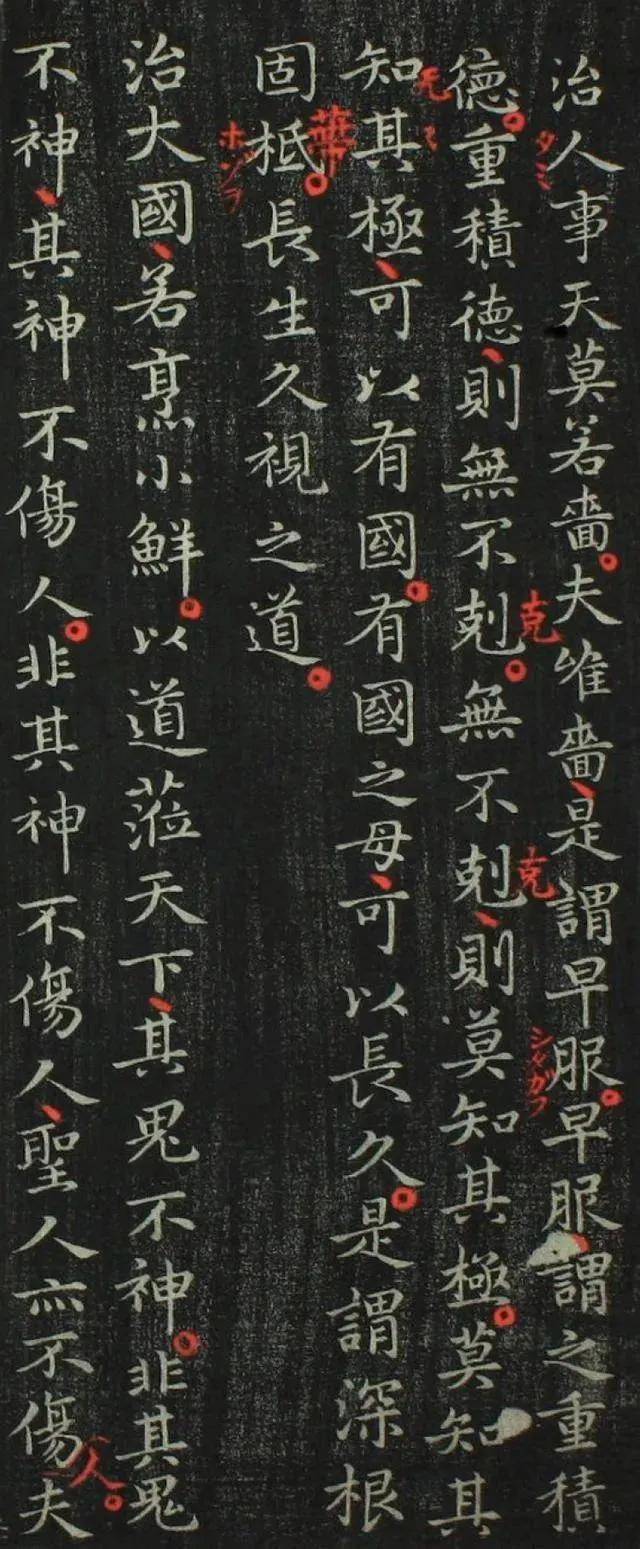 治人事天莫若嗇。夫唯嗇、是謂早服。早服、謂之重積
タミ
シタガフ
徳。重積徳、則無不剋。無不剋、則莫知其極。莫知其
克
克
知其極、可以有國。有國之母、可以長久。是謂深根
固柢。長生久視之道。
蔕
ホゾヲ
治大國、若烹小鮮。以道莅天下、其鬼不神。非其鬼
不神、其神不傷人。非其神不傷人、聖人亦不傷夫
人。